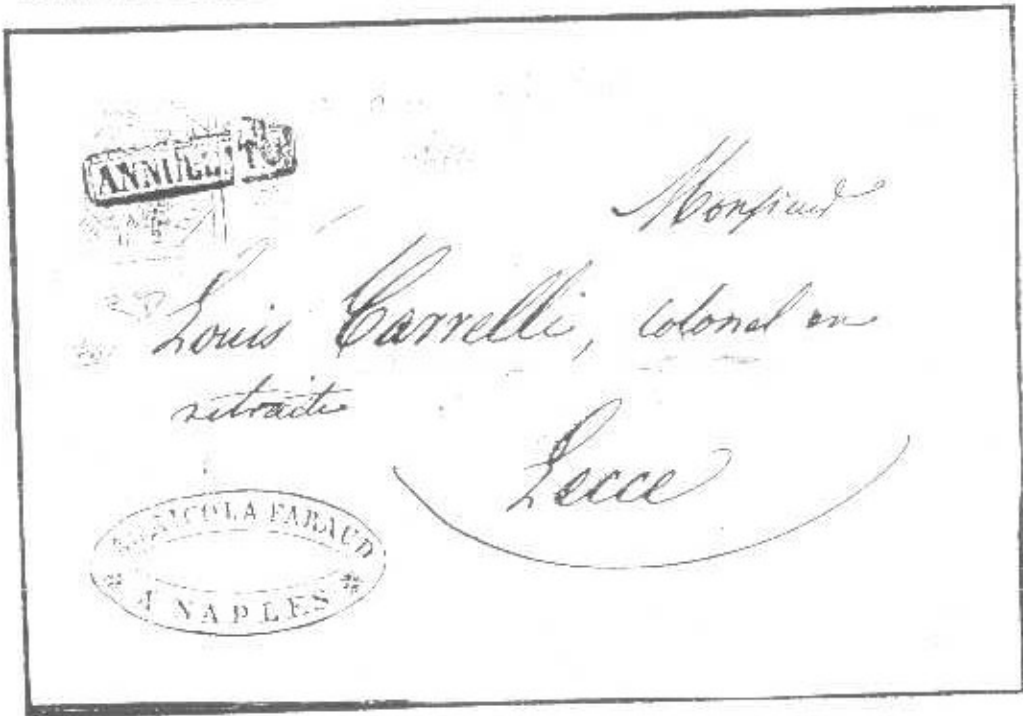 ANNULLATO
Monsieur
Louis Carrelli, colonel en
retraite
Lecce
NICOLA FARAUD
A NAPLES